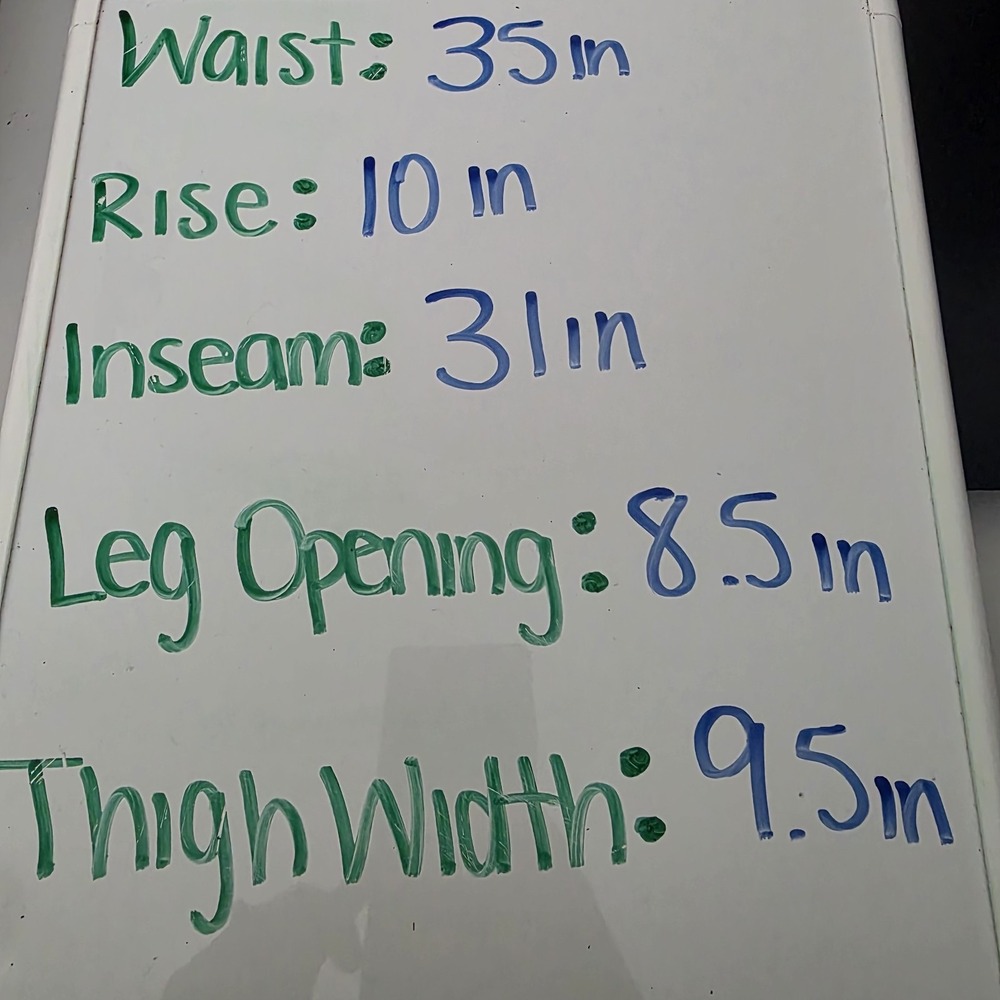 Waist: 35in
Rise: 10 in
Inseam: 31in
Leg Opening: 8.5 in
Thigh Width: 9.5in